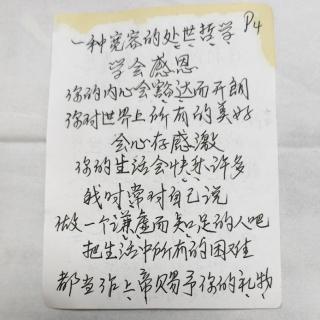 一种宽容的处世哲学 P4
学会感恩
你的内心会豁达而开朗
你对世界上所有的美好
会心存感激
你的生活会快乐许多
我时常对自己说
做一个谦虚而知足的人吧
把生活中所有的困难
都当作上帝赐予你的礼物